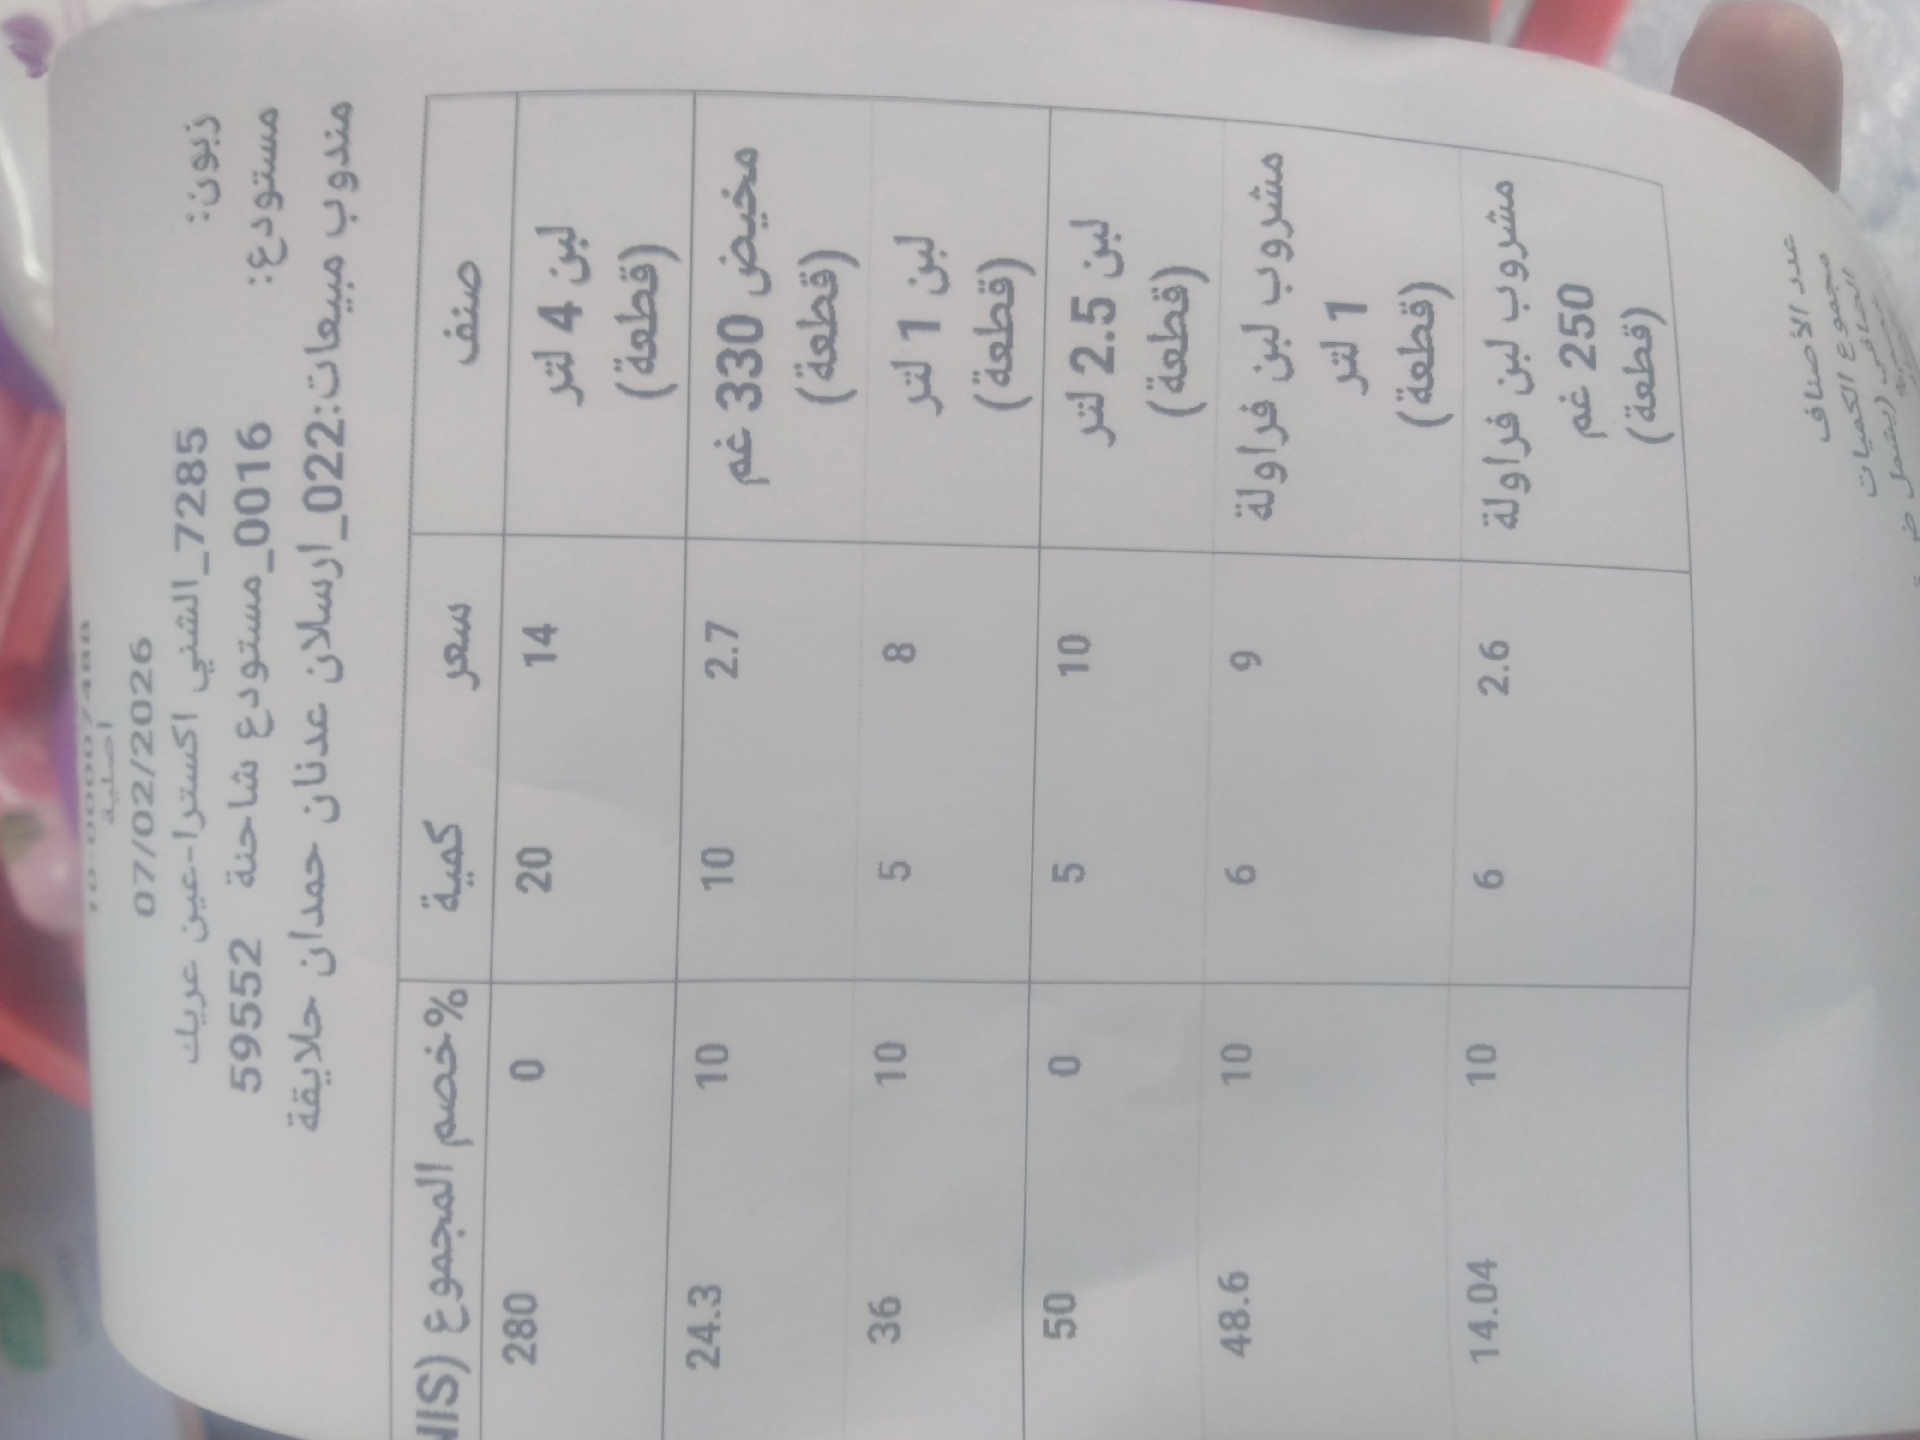 أصلية
07/02/2026
زبون: 7285_الشني اكسترا-عين عريك
مستودع: 0016_مستودع شاحنة 59552
مندوب مبيعات:022_ارسلان عدنان حمدان حلايقة
صنف سعر كمية خصم% المجموع (NIS
لبن 4 لتر 14 20 0 280
(قطعة)
مخيض 330 غم 2.7 10 10 24.3
(قطعة)
لبن 1 لتر 8 5 10 36
(قطعة)
لبن 2.5 لتر 10 5 0 50
(قطعة)
مشروب لبن فراولة 9 6 10 48.6
1 لتر
(قطعة)
مشروب لبن فراولة 2.6 6 10 14.04
250 غم
(قطعة)
عدد الأصناف
مجموع الكميات